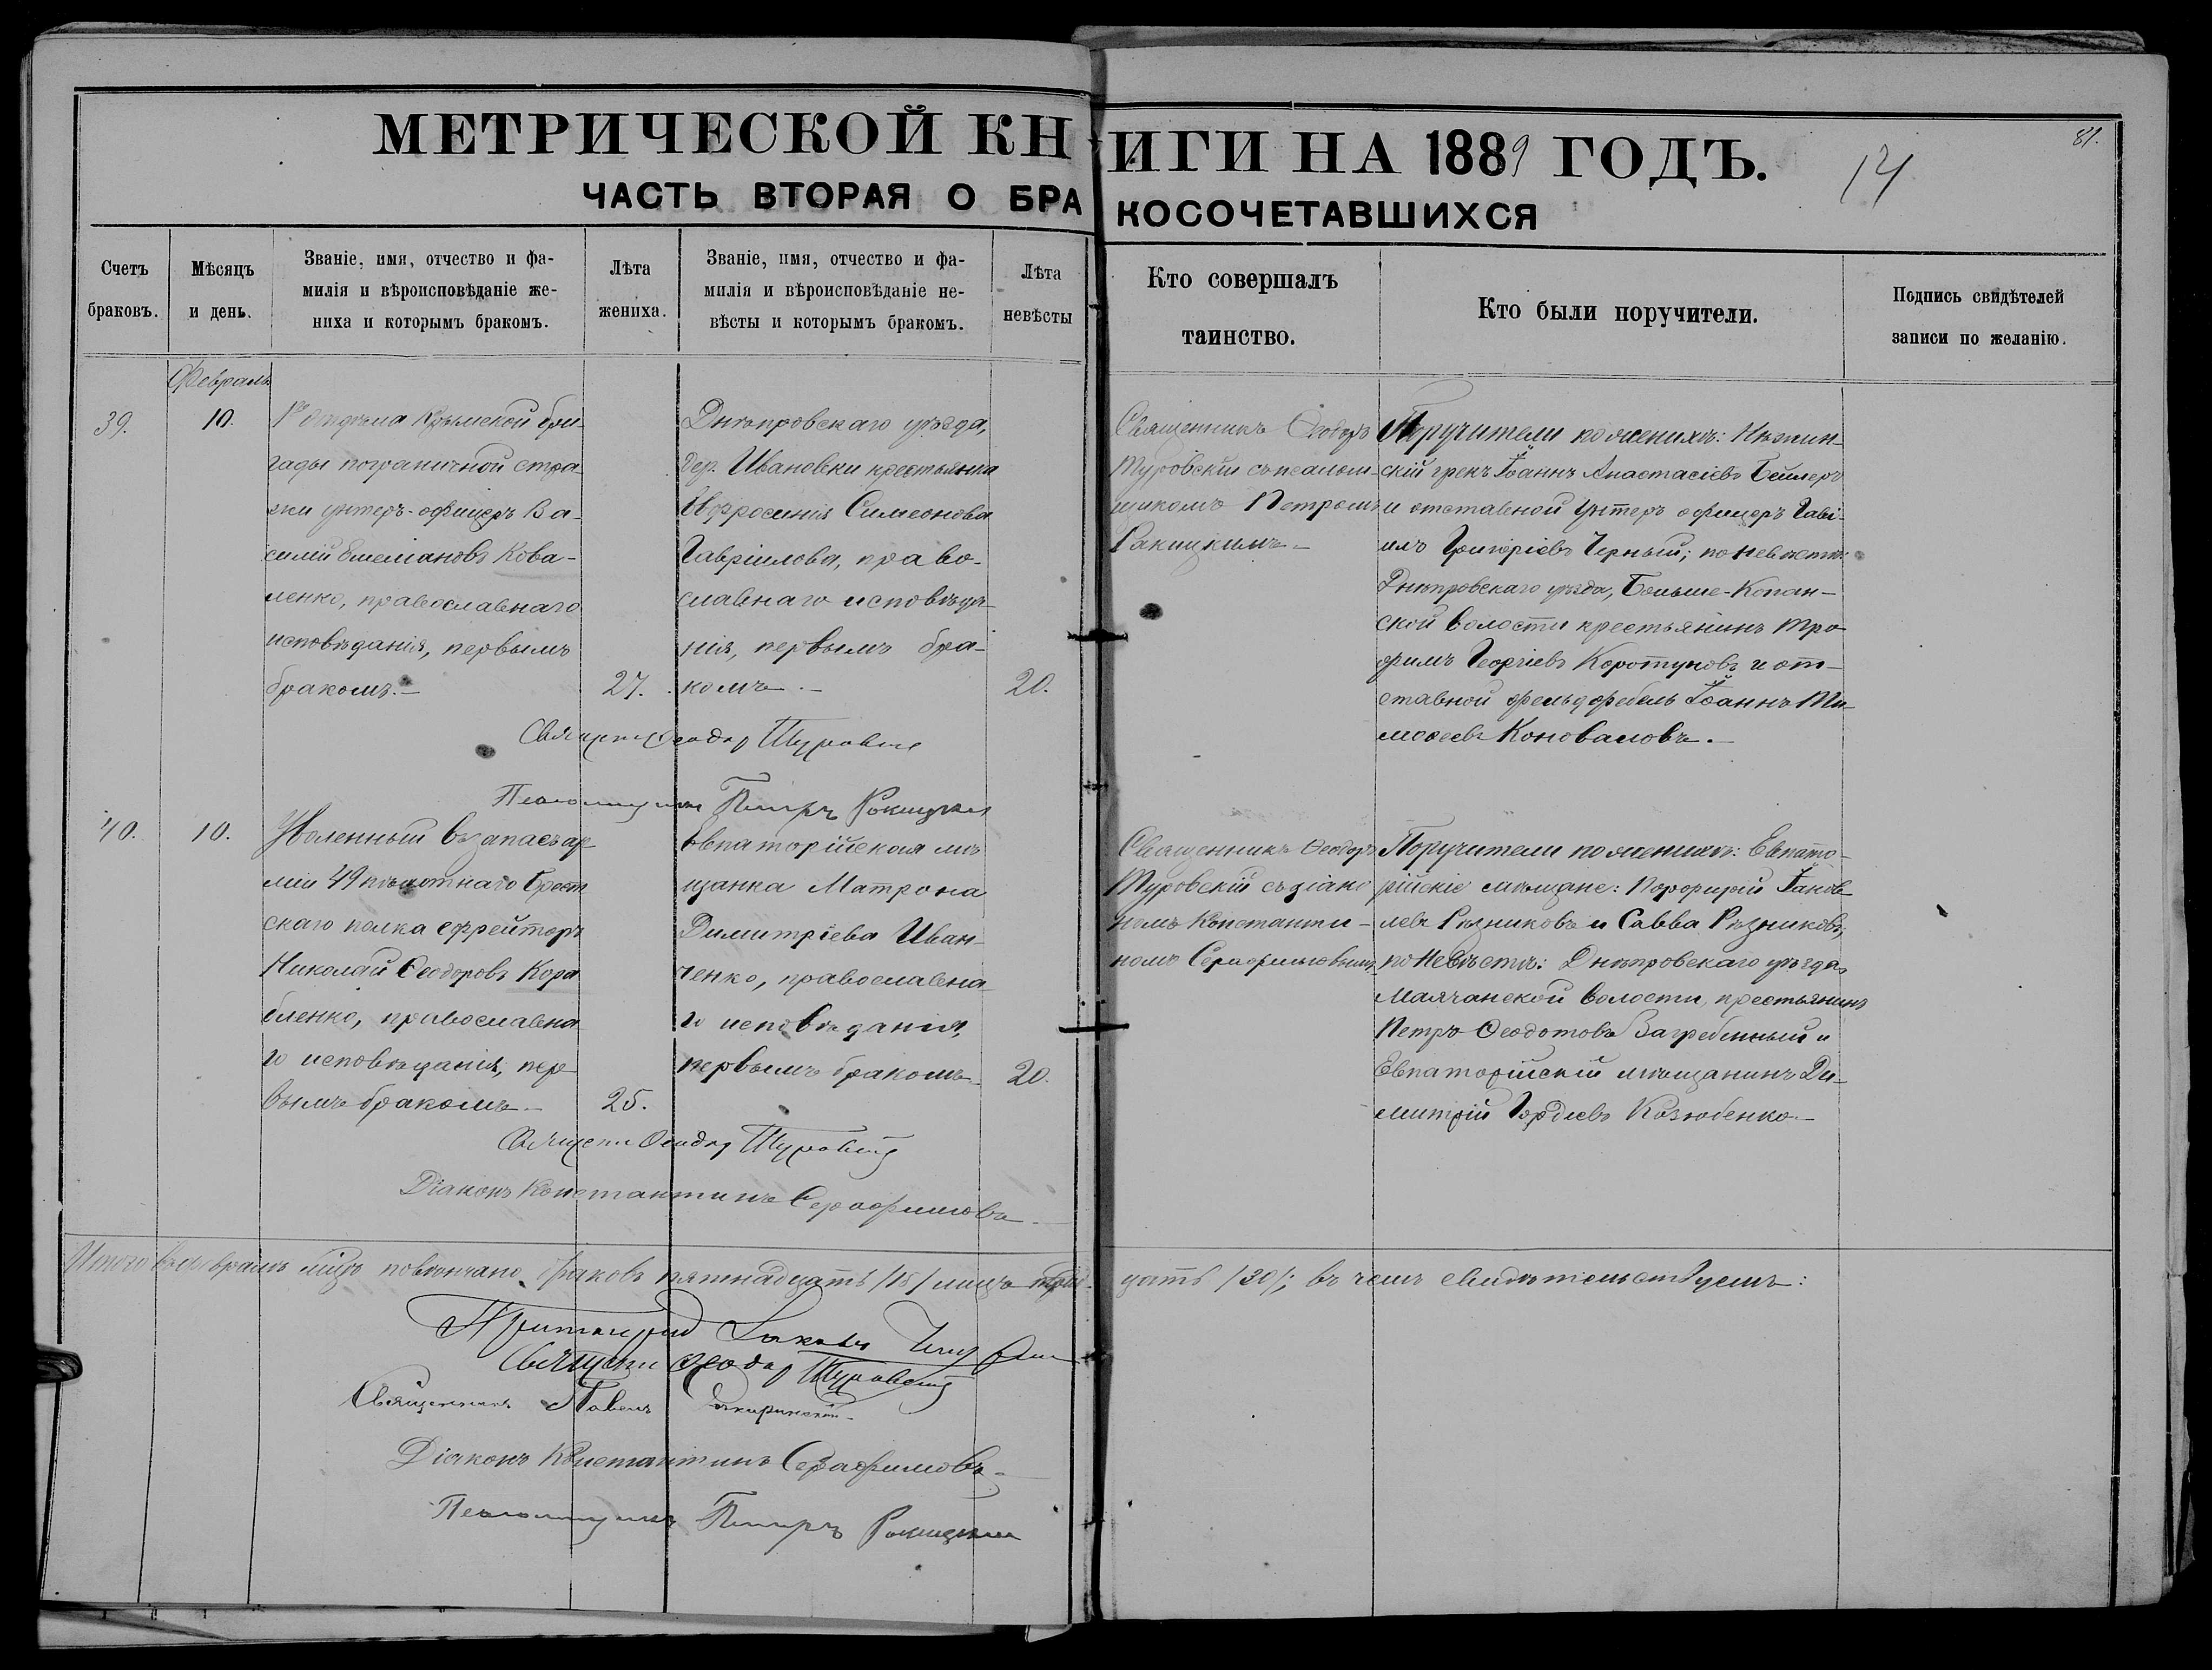 МЕТРИЧЕСКОЙ КНИГИ НА 1889 ГОДЪ.
14
81.
ЧАСТЬ ВТОРАЯ О БРАКОСОЧЕТАВШИХСЯ
Счетъ
браковъ.
Мѣсяцъ
и день.
Званіе, имя, отчество и фа-
милія и вѣроисповѣданіе же-
ниха и которымъ бракомъ.
Лѣта
жениха.
Званіе, имя, отчество и фа-
милія и вѣроисповѣданіе не-
вѣсты и которымъ бракомъ.
Лѣта
невѣсты
Кто совершалъ
таинство.
Кто были поручители.
Подпись свидѣтелей
записи по желанію.
Февраль
39.
10.
1го отдѣла Крымской бри-
гады пограничной стра-
жи унтеръ-офицеръ Ва-
силій Емеліановъ Кова-
ленко, православнаго
исповѣданія, первымъ
бракомъ.-
27.
Днѣпровскаго уѣзда,
дер. Ивановки крестьянка
Евфросинія Симеонова
Гавріилова, право-
славнаго исповѣда-
нія, первымъ бра-
комъ.-
20.
Священникъ Ѳеодоръ
Туровскій съ псалом-
щикомъ Петромъ
Ракицкимъ-
Поручители по женихѣ: Нѣжин-
скій грекъ Іоаннъ Анастасіевъ
и отставной унтеръ офицеръ Гаврі-
илъ Григоріевъ Черный; по невѣстѣ:
Днѣпровскаго уѣзда, Больше-Копан-
ской волости крестьянинъ Тро-
фимъ Георгіевъ Коротуновъ и от-
ставной фельдфебель Іоаннъ Ти-
моѳеевъ Коноваловъ.-
Священн Ѳеодор Туровскій
Псаломщикъ Петръ Ракицкій
40.
10.
Уволенный въ запасъ ар-
міи 49 пѣхотнаго Брест
скаго полка ефрейторъ
Николай Ѳеодоровъ Кора
бленко, православна
го исповѣданія, пер-
вымъ бракомъ-
25.
Евпаторійская мѣ
щанка Матрона
Димитріева Иван-
ченко, православна-
го исповѣданія,
первымъ бракомъ-
20.
Священникъ Ѳеодоръ
Туровскій съ діако
номъ Константи-
номъ Серафимовымъ
Поручители по женихѣ: Евпато-
рійскіе мѣщане: Порфирій Іаков-
левъ Рѣзниковъ и Савва Рѣзниковъ,
по невѣстѣ: Днѣпровскаго уѣзда,
Маячанской волости, крестьянинъ
Петръ Ѳеодотовъ Загребельный и
Евпаторійскій мѣщанинъ Ди-
митрій Гордіевъ Козюбенко.-
Священн Ѳеодор Туровскій
Діаконъ Константинъ Серафимовъ
Итого въ февралѣ м-цѣ повѣнчано браковъ пятнадцать /15/ лицъ трид-
цать /30/; въ чемъ свидѣтельствуемъ:
Протоіерей Іаковъ
Священн Ѳеодор Туровскій
Священникъ Павелъ
Діаконъ Константинъ Серафимовъ-
Псаломщикъ Петръ Ракицкій